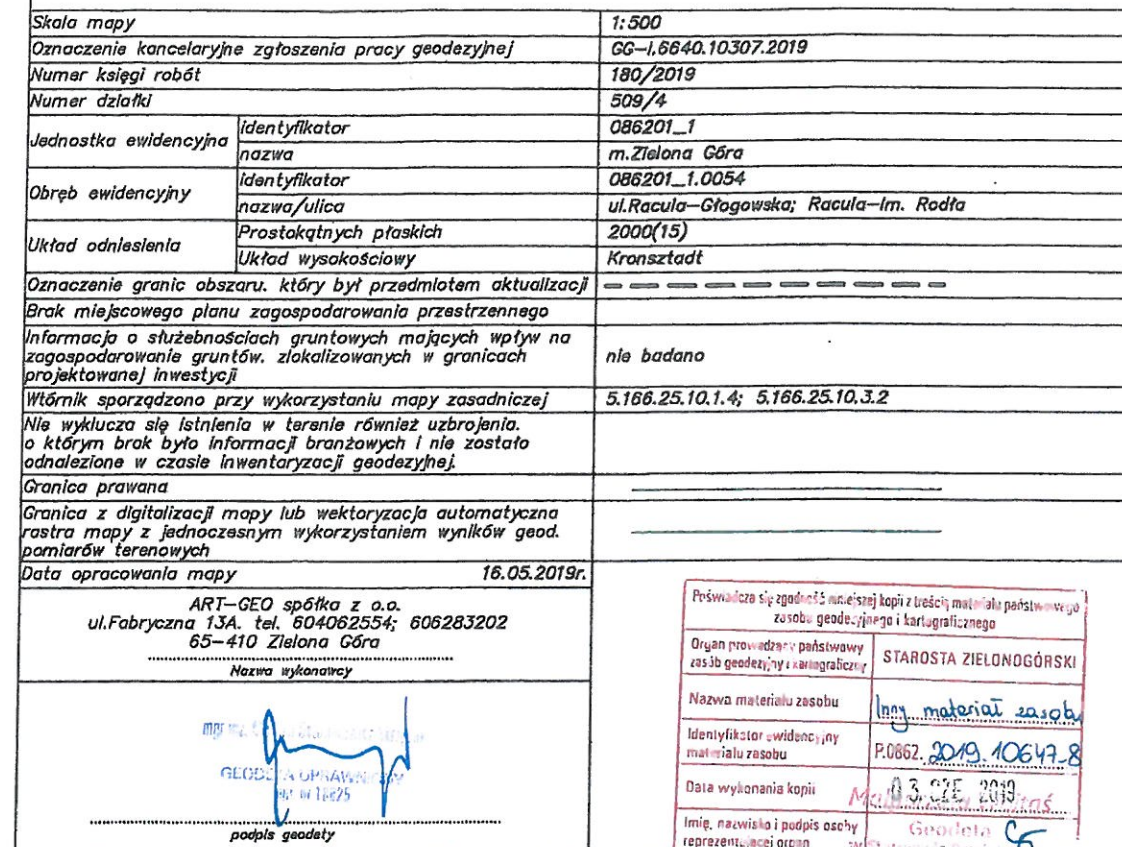 Skala mapy 1:500
Oznaczenie kancelaryjne zgłoszenia pracy geodezyjnej GG-I.6640.10307.2019
Numer księgi robót 180/2019
Numer działki 509/4
Jednostka ewidencyjna
identyfikator 086201_1
nazwa m.Zielona Góra
Obręb ewidencyjny
identyfikator 086201_1.0054
nazwa/ulica ul.Racula-Głogowska; Racula-Im. Rodła
Układ odniesienia
Prostokątnych płaskich 2000(15)
Układ wysokościowy Kronsztadt
Oznaczenie granic obszaru. który był przedmiotem aktualizacji
Brak miejscowego planu zagospodarowania przestrzennego
Informacja o służebnościach gruntowych mających wpływ na
zagospodarowanie gruntów. zlokalizowanych w granicach
projektowanej inwestycji
nie badano
Wtórnik sporządzono przy wykorzystaniu mapy zasadniczej 5.166.25.10.1.4; 5.166.25.10.3.2
Nie wyklucza się istnienia w terenie również uzbrojenia.
o którym brak było informacji branżowych i nie zostało
odnalezione w czasie inwentaryzacji geodezyjnej.
Granica prawana
Granica z digitalizacji mapy lub wektoryzacja automatyczna
rastra mapy z jednoczesnym wykorzystaniem wyników geod.
pomiarów terenowych
Data opracowania mapy 16.05.2019r.
ART-GEO spółka z o.o.
ul.Fabryczna 13A. tel. 604062554; 606283202
65-410 Zielona Góra
Nazwa wykonawcy
mgr inż.
GEODETA UPRAWNIONY
podpis geodety
Poświadcza się zgodność niniejszej kopii z treścią materiału państwowego
zasobu geodezyjnego i kartograficznego
Organ prowadzący państwowy
zasób geodezyjny i kartograficzny
STAROSTA ZIELONOGÓRSKI
Nazwa materiału zasobu Inny materiał zasobu
Identyfikator ewidencyjny
materiału zasobu
P.0862. 2019.10647-8
Data wykonania kopii 03. CZE. 2019
Imię, nazwisko i podpis osoby
reprezentującej organ
Geodeta